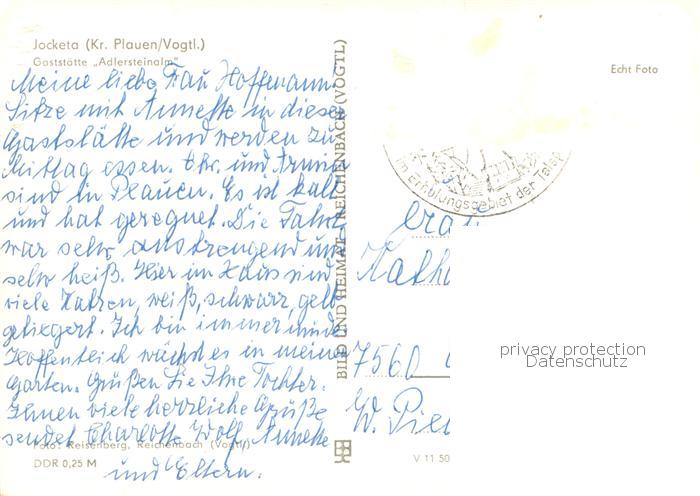 Jocketa (Kr. Plauen/Vogtl.)
Gaststätte „Adlersteinalm"
Meine liebe Frau Hoffmann!
Sitze mit Annette in dieser
Gaststätte und werden zu
Mittag essen. Chr. und Armin
sind in Plauen. Es ist kalt
und hat geregnet. Die Fahrt
war sehr anstrengend und
sehr heiß. Hier im Haus sind
viele Katzen, weiß, schwarz, gelb
getigert. Ich bin immer müde
Hoffentlich wächst es in meinem
Garten. Grüßen Sie Ihre Tochter.
Ihnen viele herzliche Grüße
sendet Charlotte Wolf, Annette
und Eltern.
Foto: Reisenberg, Reichenbach (Vogtl)
DDR 0,25 M
BILD UND HEIMAT REICHENBACH (VOGTL)
Echt Foto
im Erholungsgebiet der Talsp
Kath
7560
W. Pie
V 11 50
privacy protection
Datenschutz